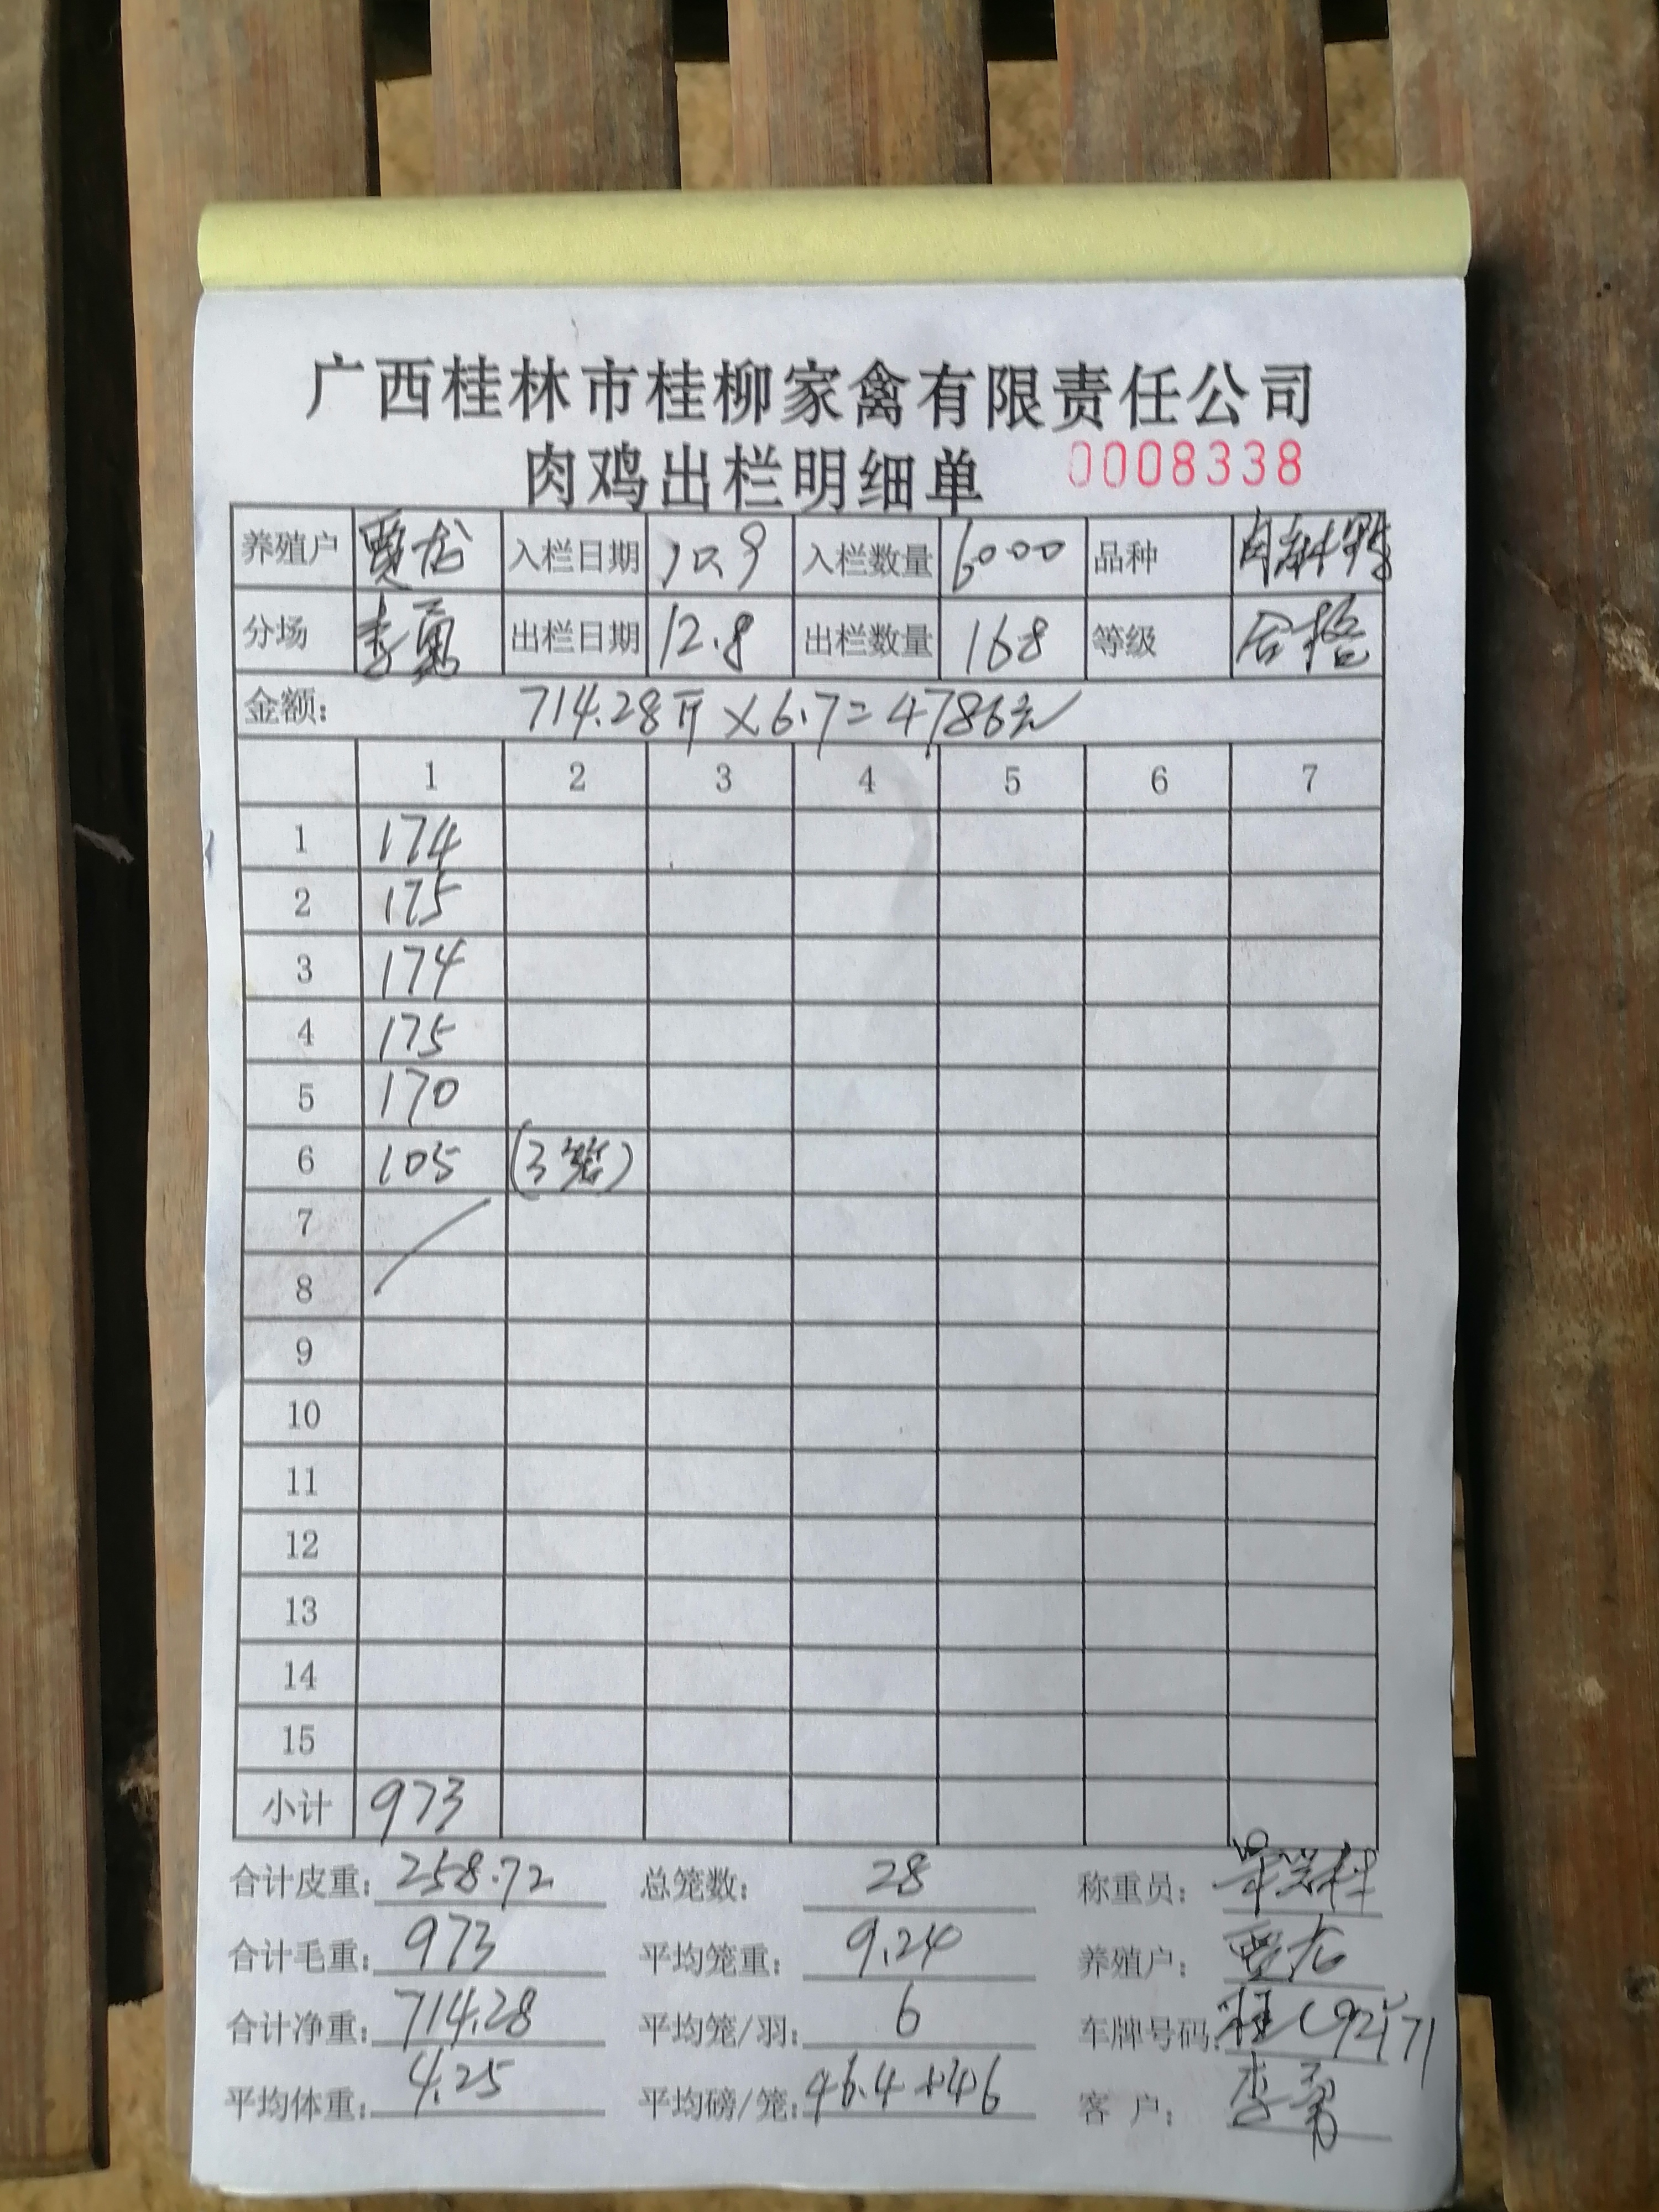 广西桂林市桂柳家禽有限责任公司
肉鸡出栏明细单 0008338
养殖户 贾龙 入栏日期 10.9 入栏数量 6000 品种
分场 李勇 出栏日期 12.8 出栏数量 168 等级 合格
金额: 714.28斤×6.7=4786元
1 2 3 4 5 6 7
1 174
2 175
3 174
4 175
5 170
6 105 (3笼)
7
8
9
10
11
12
13
14
15
小计 973
合计皮重: 258.72 总笼数: 28 称重员:
合计毛重: 973 平均笼重: 9.24 养殖户: 贾龙
合计净重: 714.28 平均笼/羽: 6 车牌号码: 桂C92171
平均体重: 4.25 平均磅/笼: 客 户: 李勇